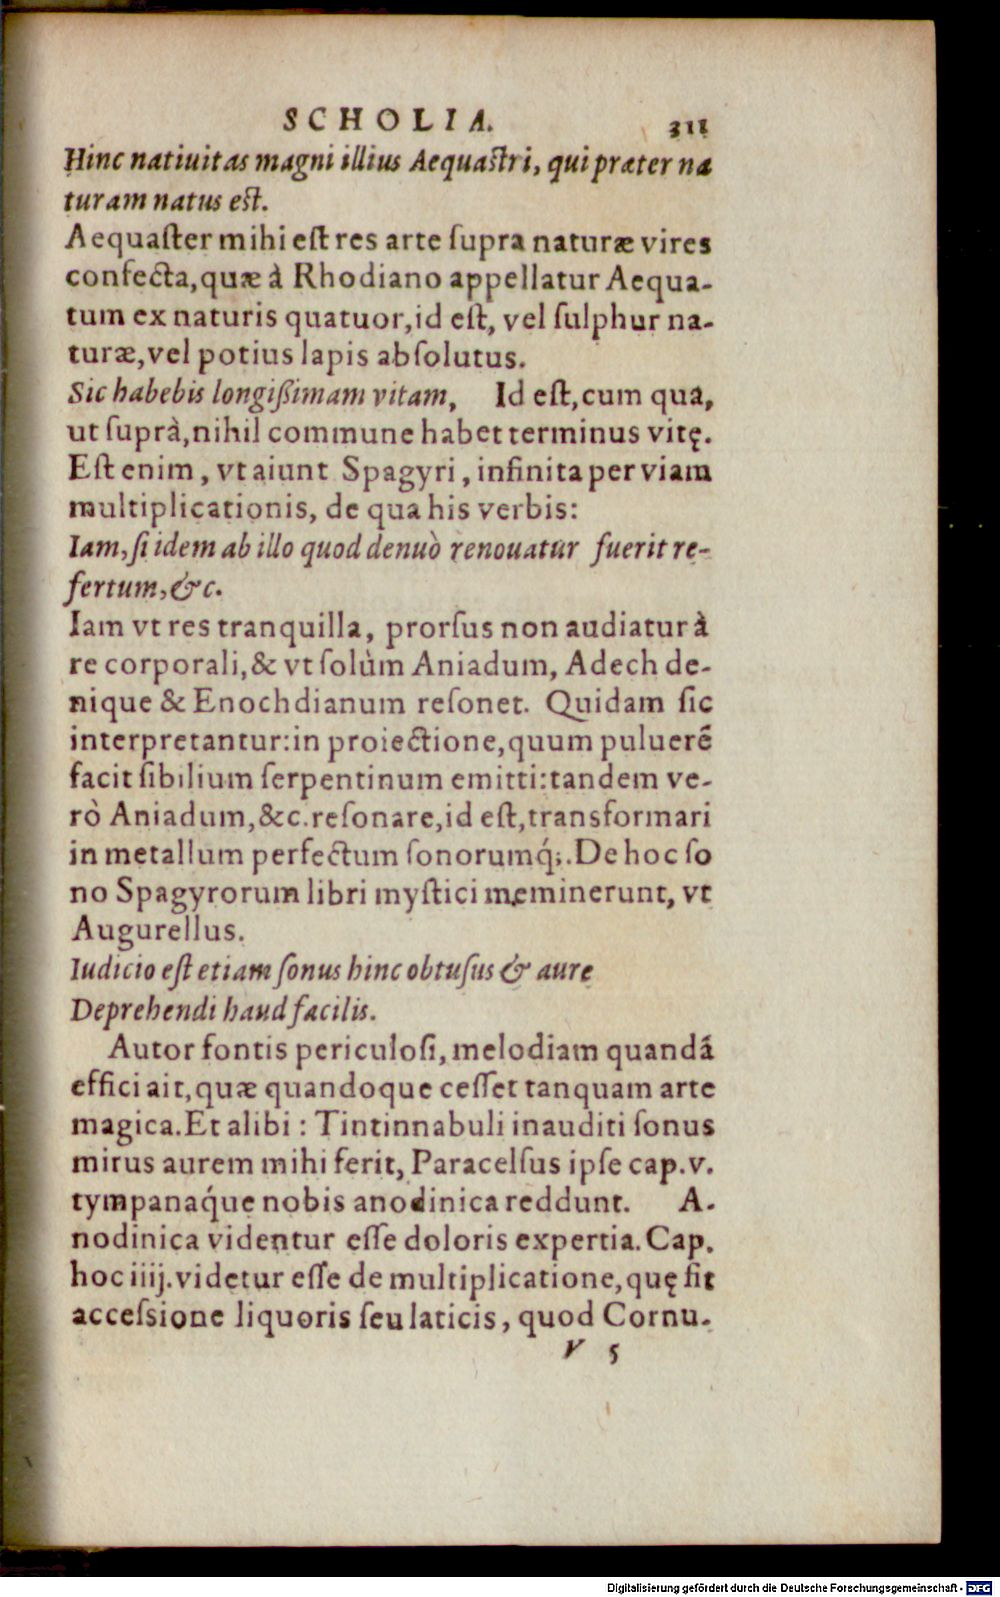 SCHOLIA. 311
Hinc natiuitas magni illius Aequaſtri, qui præter na
turam natus eſt.
Aequaſter mihi eſt res arte ſupra naturæ vires
confecta, quæ à Rhodiano appellatur Aequa-
tum ex naturis quatuor, id eſt, vel ſulphur na-
turæ, vel potius lapis abſolutus.
Sic habebis longißimam vitam, Id eſt, cum qua,
ut ſuprà, nihil commune habet terminus vitę.
Eſt enim, vt aiunt Spagyri, infinita per viam
multiplicationis, de qua his verbis:
Iam, ſi idem ab illo quod denuò renouatur fuerit re-
fertum, &c.
Iam vt res tranquilla, prorſus non audiatur à
re corporali, & vt ſolùm Aniadum, Adech de-
nique & Enochdianum reſonet. Quidam ſic
interpretantur: in proiectione, quum puluerẽ
facit ſibilium ſerpentinum emitti: tandem ve-
rò Aniadum, &c. reſonare, id eſt, transformari
in metallum perfectum ſonorumq́;. De hoc ſo
no Spagyrorum libri myſtici meminerunt, vt
Augurellus.
Iudicio eſt etiam ſonus hinc obtuſus & aure
Deprehendi haud facilis.
Autor fontis periculoſi, melodiam quandã
effici ait, quæ quandoque ceſſet tanquam arte
magica. Et alibi: Tintinnabuli inauditi ſonus
mirus aurem mihi ferit, Paracelſus ipſe cap. v.
tympanaq́ue nobis anodinica reddunt. A-
nodinica videntur eſſe doloris expertia. Cap.
hoc iiij. videtur eſſe de multiplicatione, quę fit
acceſsione liquoris ſeu laticis, quod Cornu-
V 5
Digitalisierung gefördert durch die Deutsche Forschungsgemeinschaft - DFG